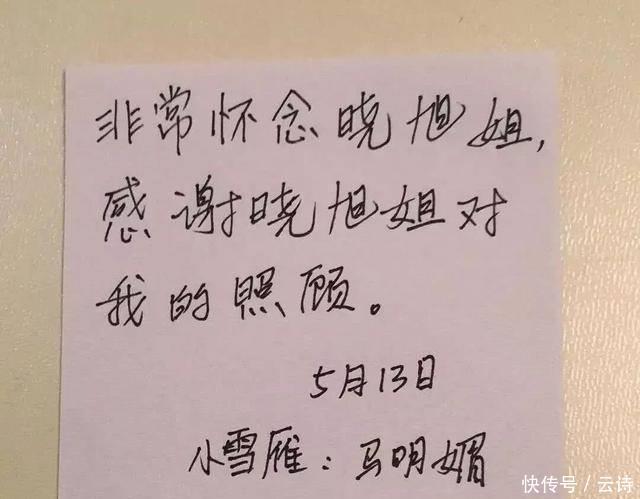 非常怀念晓旭姐,
感谢晓旭姐对
我的照顾。
5月13日
小雪雁:马明媚
快传号/云诗